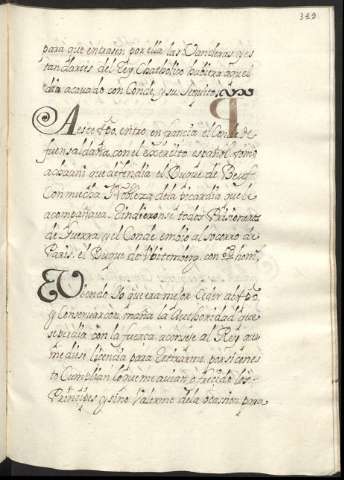 349
para que entrasen por ella las Vanderas y es
tandartes del Rey Chatholico hubiera aquel
dia acavado con Conde, y su sequito,
A este tpo. entro en francia el Conde de
fuensaldaña, con el exercito español, tomo
a que defendia el Duque de
Con mucha Nobleza de la picardia que le
acompañava. Rindieronse todos Prisioneros
de Guerra, y el Conde embio al socorro de
Paris, el Duque de Vitemberg, con
Viendo Yo que era mejor Ceder al tpo.
y Conservar con maña la Authoridad que
se perdia con la fuerca, aconseje al Rey que
me diese licencia para Retirarme, por si con es
to Cumplian lo que me avian ofrecido los
Principes y sino Valerme de la ocasion para